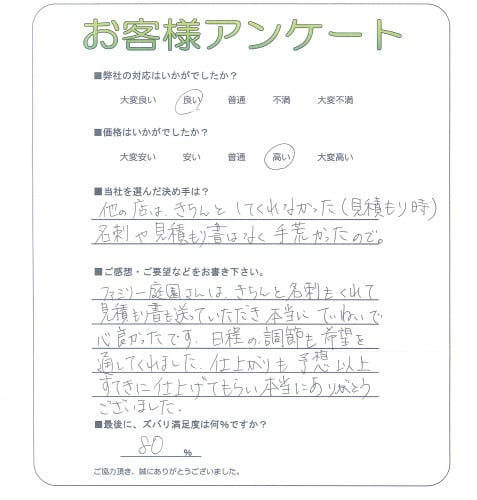 お客様アンケート
■弊社の対応はいかがでしたか？
大変良い 良い 普通 不満 大変不満
■価格はいかがでしたか？
大変安い 安い 普通 高い 大変高い
■当社を選んだ決め手は？
他の店は、きちんとしてくれなかった(見積もり時)
名刺や見積もり書はなく手荒かったので。
■ご感想・ご要望などをお書き下さい。
ファミリー庭園さんは、きちんと名刺もくれて
見積もり書も送っていただき本当にていねいで
心良かったです。日程の調節も希望を
通してくれました。仕上がりも予想以上
すてきに仕上げてもらい本当にありがとう
ございました。
■最後に、ズバリ満足度は何%ですか？
80 %
ご協力頂き、誠にありがとうございました。